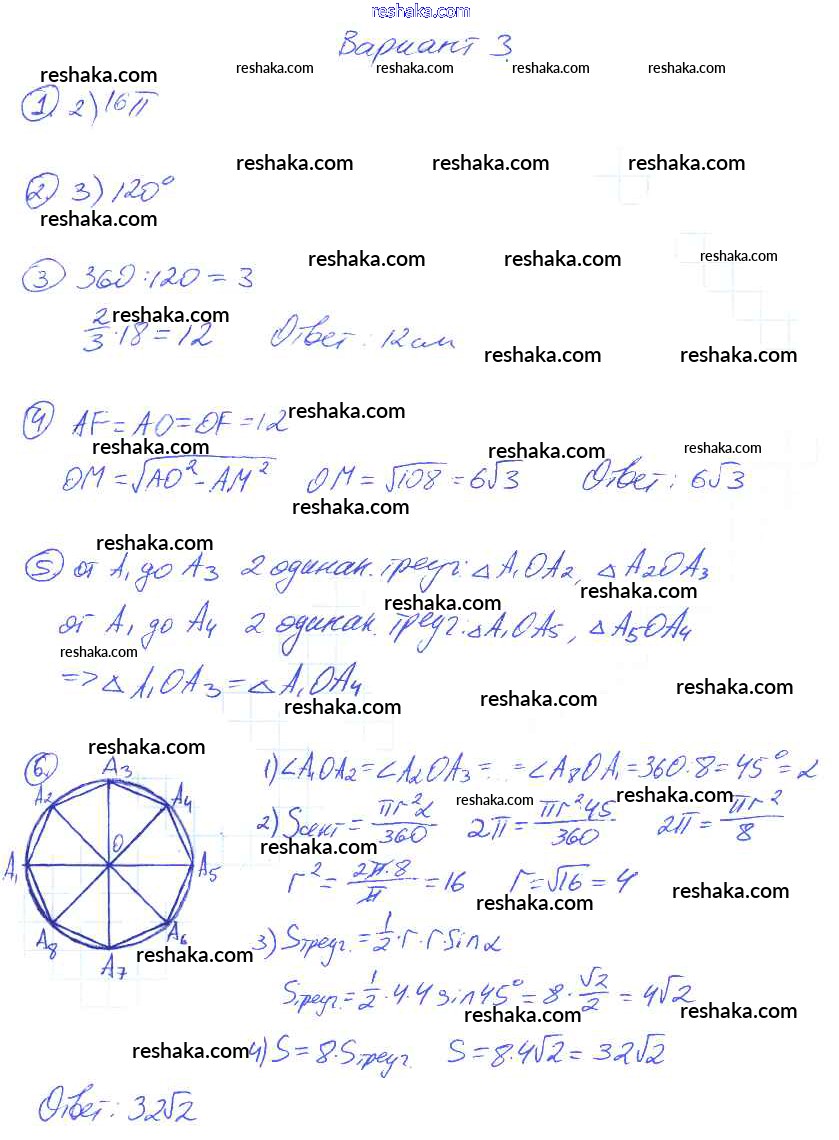 reshaka.com
Вариант 3
reshaka.com reshaka.com reshaka.com reshaka.com reshaka.com
1. 2) 16π
reshaka.com reshaka.com reshaka.com
2. 3) 120°
reshaka.com
reshaka.com reshaka.com reshaka.com
3 360:120=3
reshaka.com
2/3·18=12 Ответ: 12см
reshaka.com reshaka.com
4 AF=AO=OF=12
reshaka.com
reshaka.com reshaka.com reshaka.com
OM=√AO²-AM² OM=√108=6√3 Ответ: 6√3
reshaka.com
reshaka.com
5. от A₁ до A₃ 2 одинак. треуг: △A₁OA₂, △A₂OA₃
reshaka.com reshaka.com
от A₁ до A₄ 2 одинак. треуг: △A₁OA₅, △A₅OA₄
reshaka.com
=> △A₁OA₃=△A₁OA₄
reshaka.com reshaka.com reshaka.com
reshaka.com
6. 1) ∠A₁OA₂=∠A₂OA₃=...=∠A₈OA₁=360:8=45°=α
A₃
A₂ A₄
reshaka.com reshaka.com
2) Sсект=πr²α/360 2π=πr²45/360 2π=πr²/8
reshaka.com
O
A₁ A₅
r²=2π·8/π=16 r=√16=4
reshaka.com reshaka.com
A₈ A₆
A₇
3) Sтреуг.=1/2·r·r·sinα
reshaka.com
Sтреуг.=1/2·4·4 sin45°=8·√2/2=4√2
reshaka.com reshaka.com
reshaka.com
4) S=8·Sтреуг. S=8·4√2=32√2
reshaka.com reshaka.com
Ответ: 32√2